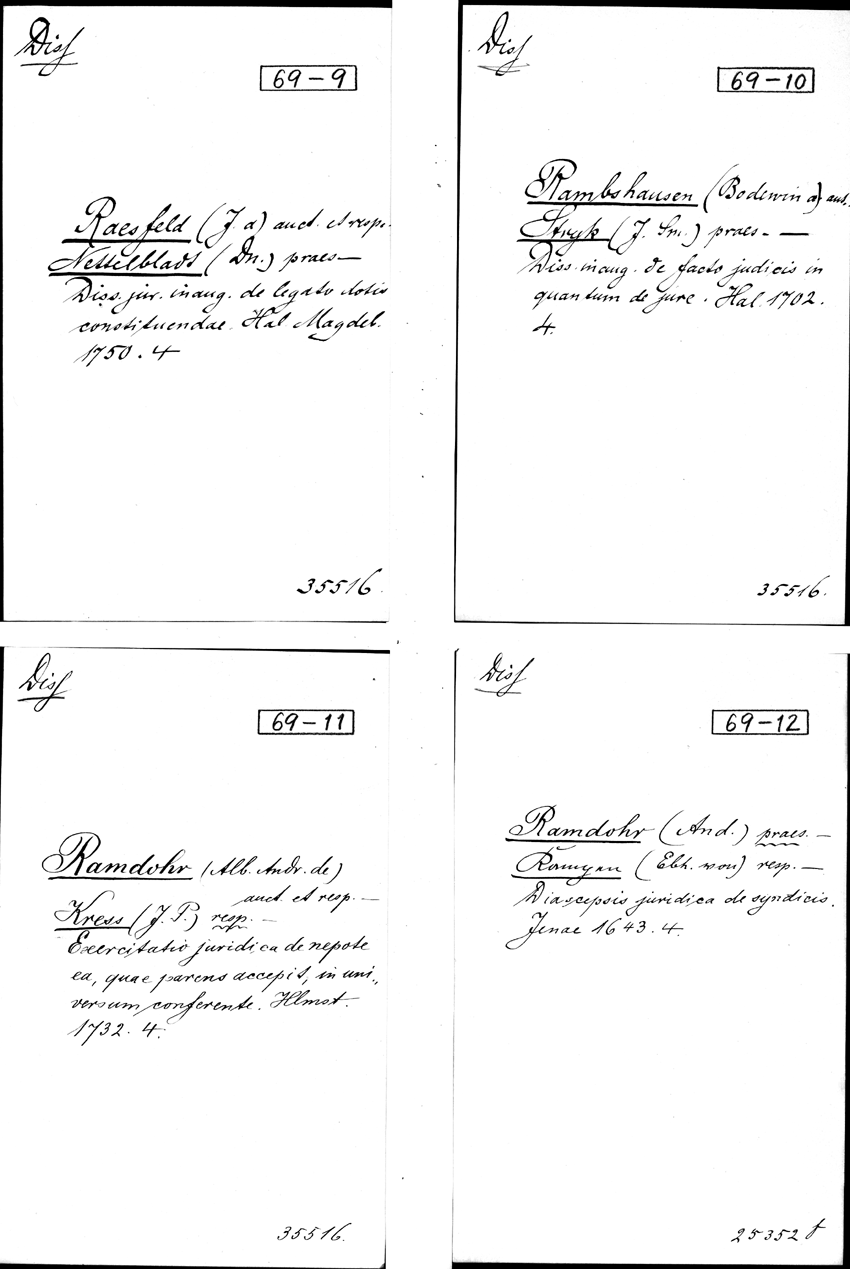 Diss
69-9
Raesfeld (J. a) auct. et resp.
Nettelbladt (Dn.) praes—
Diss. jur. inaug. de legato dotis
constituendae. Hal Magdeb.
1750. 4
35516.
Diss
69-10
Rambshausen (Bodewin a) aut.
Stryk (J. Sm.) praes. —
Diss. inaug. de facto judicis in
quantum de jure. Hal. 1702.
4.
35516.
Diss
69-11
Ramdohr (Alb. Andr. de)
auct. et resp. —
Kress (J. P.) resp. —
Exercitatio juridica de nepote
ea, quae parens accepit, in uni-
versum conferente. Hlmst.
1732. 4.
35516.
Diss
69-12
Ramdohr (And.) praes. —
(Ebh. von) resp. —
Diascepsis juridica de syndicis.
Jenae 1643. 4.
25352 f